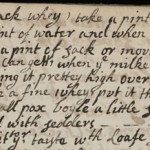 ack whey, take a pint
nt of water and when
a pint of sack or mor
the milke
ing it pretty high over
e a fine whey put it th
pax boyle a little
with
yr taiste wth loafe